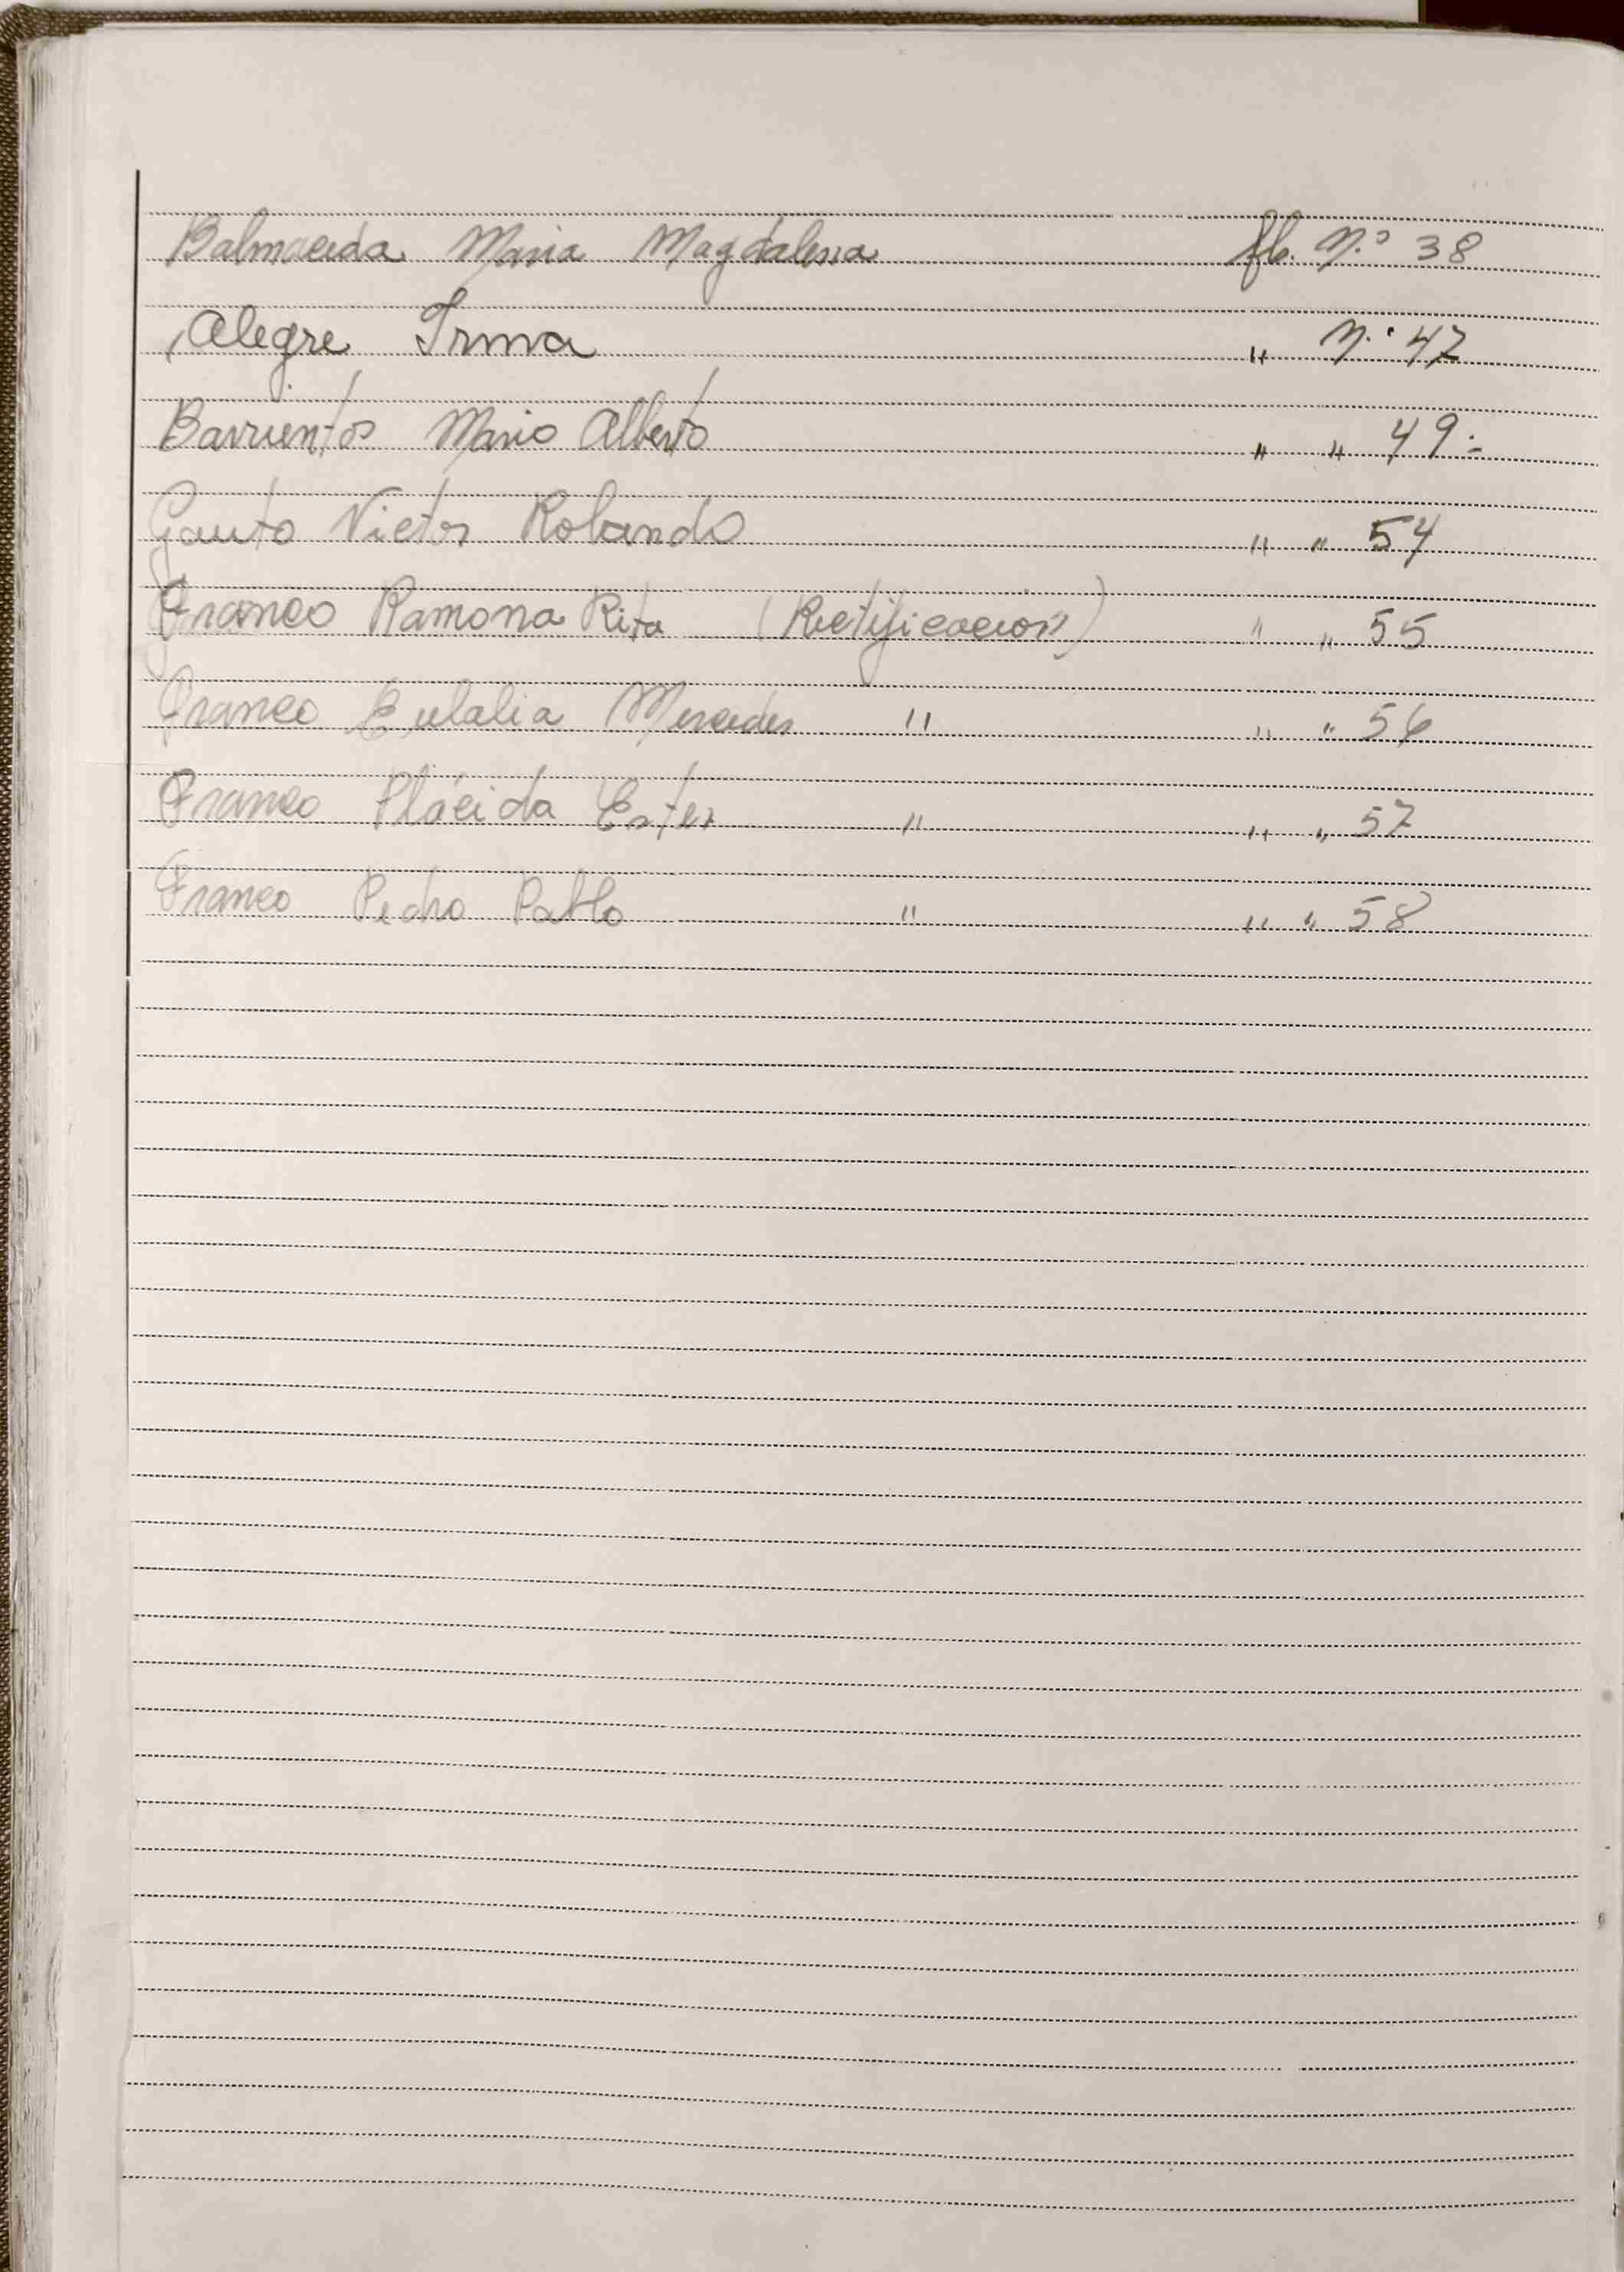 Balmaceda Maria Magdalena fb. N.º 38
Alegre Irma " N.º 47
Barrientos Mario Alberto " " 49=
Gauto Victor Rolando " " 54
Franco Ramona Rita (Rectificación) " " 55
Franco Eulalia Mercedes " " " 56
Franco Plácida Ester " " " 57
Franco Pedro Pablo " " " 58